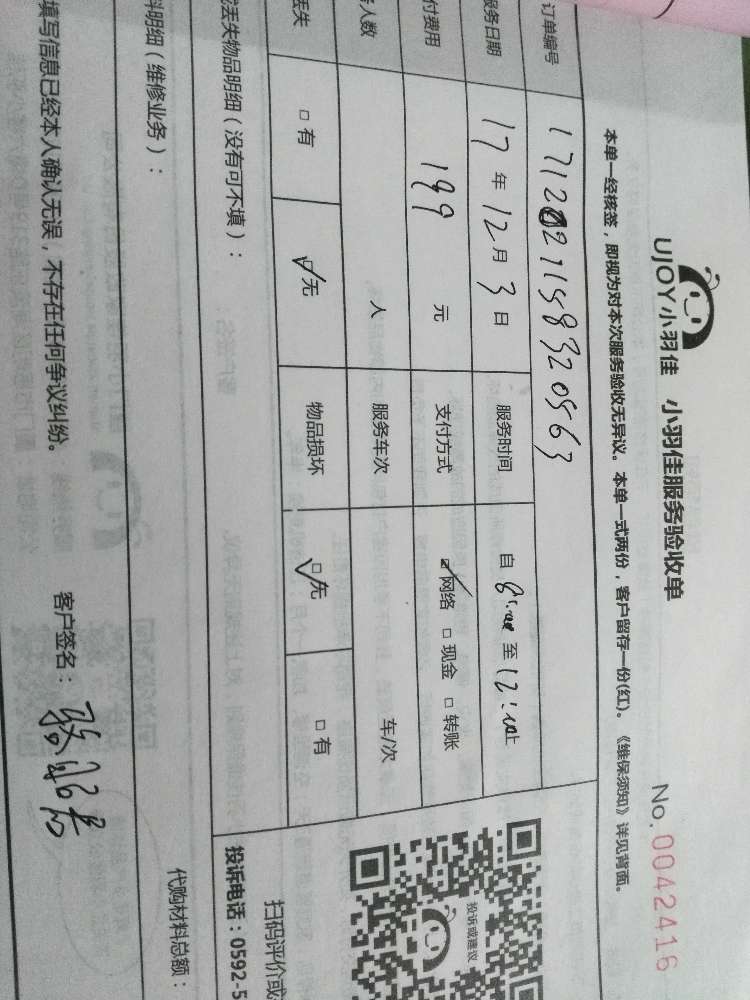 UJOY小羽佳 小羽佳服务验收单
No.0042416
本单一经核签，即视为对本次服务验收无异议。本单一式两份，客户留存一份(红)。《维保须知》详见背面。
订单编号 1712021158320563
服务日期 17年12月3日 服务时间 自 8:00 至 12:00止
付费用 199 元 支付方式 ☑网络 □现金 □转账
人数 人 服务车次 车/次
丢失 □有 ☑无 物品损坏 ☑无 □有
丢失物品明细（没有可不填）：
投诉或建议
扫码评价或
投诉电话：0592-5
料明细（维修业务）：
代购材料总额：
填写信息已经本人确认无误，不存在任何争议纠纷。
客户签名：